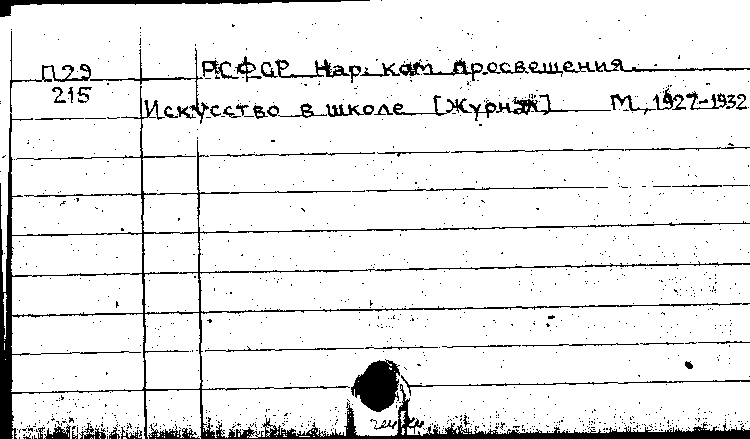 П29 РСФСР Нар. ком. просвещения.
215 Искусство в школе [Журнал] М., 1927-1932